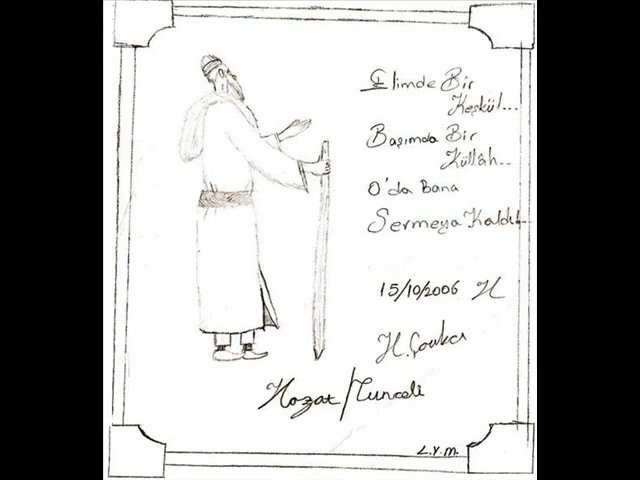 Elimde Bir
Keşkül...
Başımda Bir
Küllâh...
O'da Bana
Sermeya Kaldı...
15/10/2006 H
H.
Hozat/Tunceli
L.Y.M.